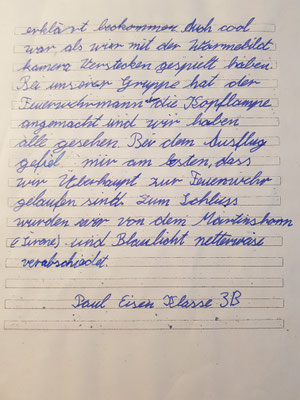 erklärt bekommen. Auch cool
war, als wir mit der Wärmebild-
kamera Verstecken gespielt haben.
Bei unserer Gruppe hat der
Feuerwehrmann die Kopflampe
angemacht und wir haben
alle gesehen. Bei dem Ausflug
gefiel mir am besten, dass
wir überhaupt zur Feuerwehr
gelaufen sind. Zum Schluss
wurden wir von dem Martinshorn
(Sirene) und Blaulicht netterwäise
verabschiedet.
Paul Eisen Klasse 3B